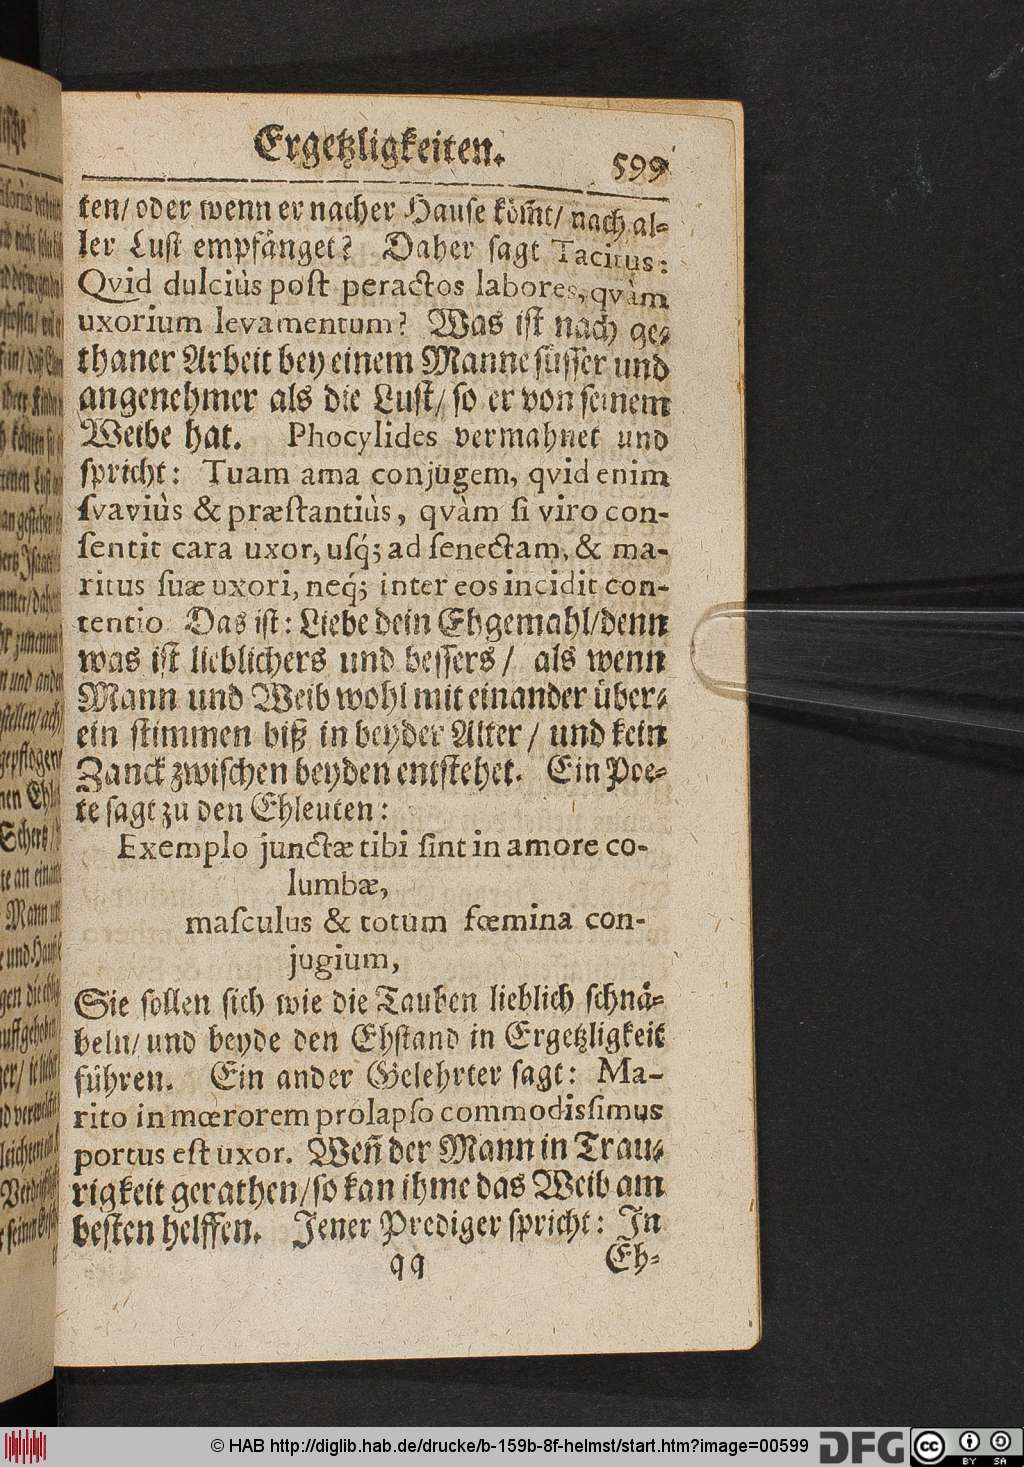 Ergetzligkeiten. 599
ten/ oder wenn er nacher Hause köm̃t/ nach al-
ler Lust empfänget? Daher sagt Tacitus:
Qvid dulciùs post peractos labores, qvàm
uxorium levamentum? Was ist nach ge-
thaner Arbeit bey einem Manne süsser und
angenehmer als die Lust/ so er von seinem
Weibe hat. Phocylides vermahnet und
spricht: Tuam ama conjugem, qvid enim
svaviùs & præstantiùs, qvàm si viro con-
sentit cara uxor, usq́; ad senectam, & ma-
ritus suæ uxori, neq́; inter eos incidit con-
tentio. Das ist: Liebe dein Ehgemahl/denn
was ist lieblichers und bessers/ als wenn
Mann und Weib wohl mit einander über-
ein stimmen biß in beyder Alter/ und kein
Zanck zwischen beyden entstehet. Ein Poe-
te sagt zu den Ehleuten:
Exemplo junctæ tibi sint in amore co-
lumbæ,
masculus & totum fœmina con-
jugium,
Sie sollen sich wie die Tauben lieblich schnä-
beln/ und beyde den Ehstand in Ergetzligkeit
führen. Ein ander Gelehrter sagt: Ma-
rito in mœrorem prolapso commodissimus
portus est uxor. Weñ der Mann in Trau-
rigkeit gerathen/so kan ihme das Weib am
besten helffen. Jener Prediger spricht: In
qq Eh-
© HAB http://diglib.hab.de/drucke/b-159b-8f-helmst/start.htm?image=00599 DFG cc BY SA